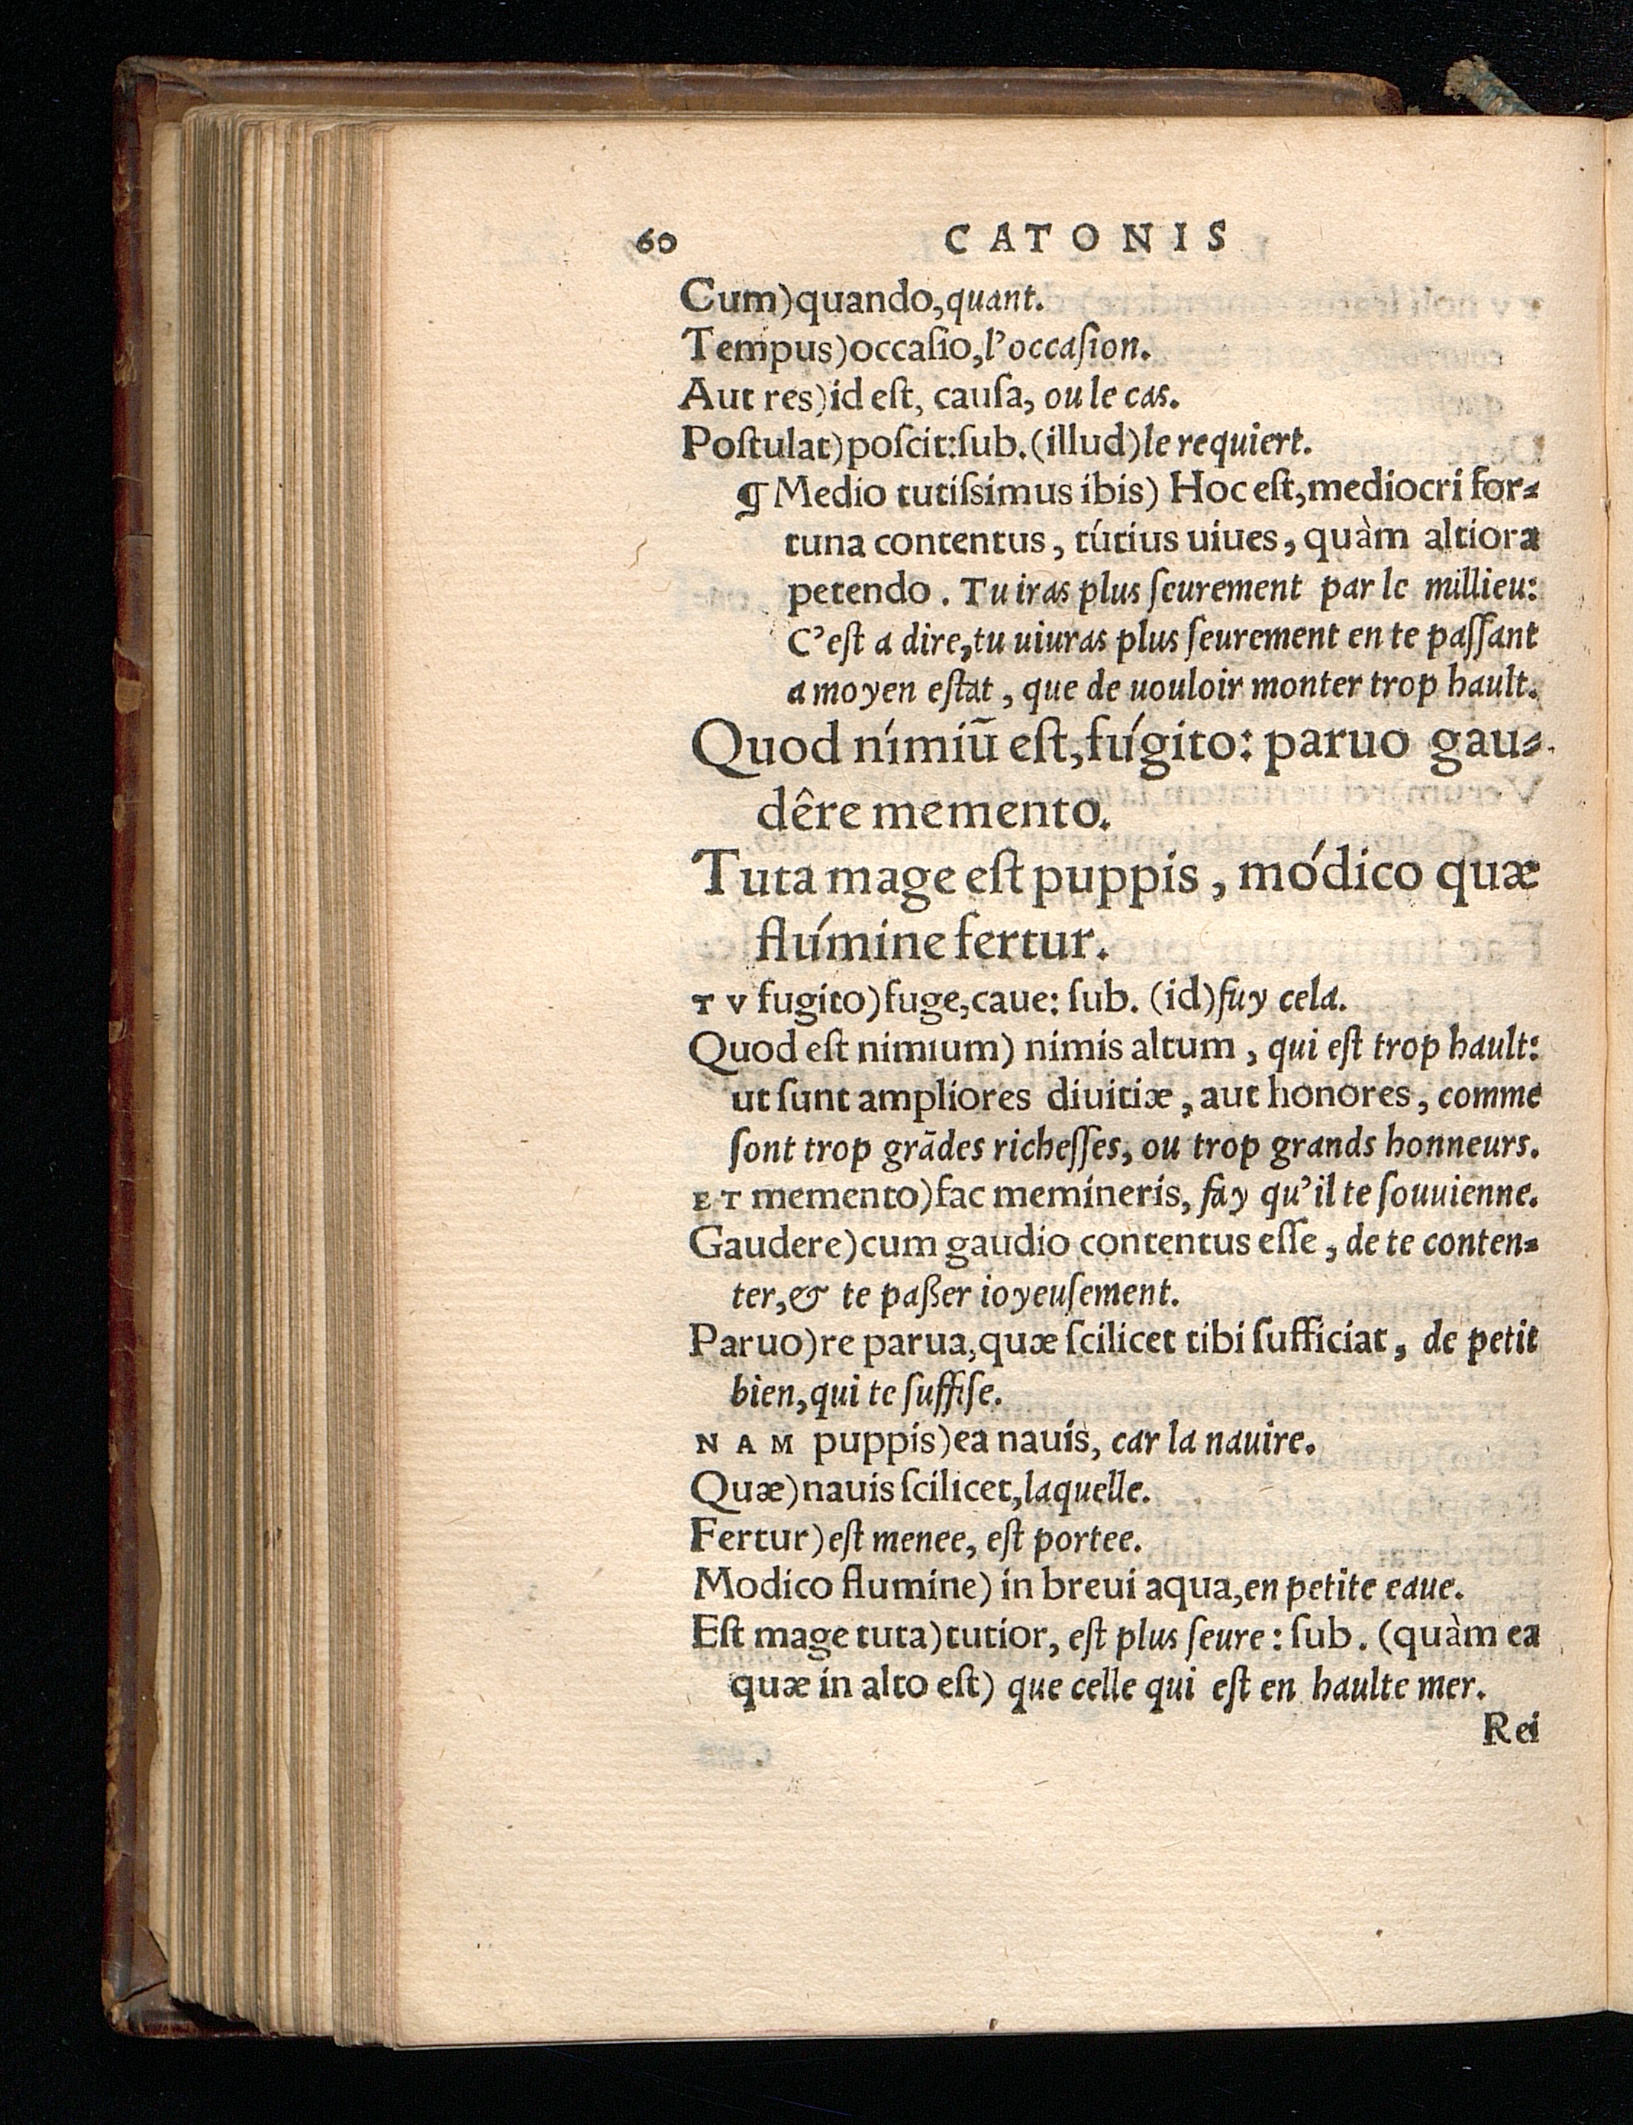 60 CATONIS
Cum)quando,quant.
Tempus)occaſio,l'occaſion.
Aut res)id eſt, cauſa, ou le cas.
Poſtulat)poſcit:ſub.(illud)le requiert.
¶ Medio tutiſsimus ibis) Hoc eſt,mediocri for⸗
tuna contentus, tútius uiues, quàm altiora
petendo. Tu iras plus ſeurement par le millieu:
C'eſt a dire,tu uiuras plus ſeurement en te paſſant
a moyen eſtat, que de uouloir monter trop hault.
Quod nímiũ eſt,fúgito: paruo gau⸗
dêre memento.
Tuta mage eſt puppis, módico quæ
flúmine fertur.
TV fugito)fuge,caue: ſub. (id)fuy cela.
Quod eſt nimium) nimis altum, qui eſt trop hault:
ut ſunt ampliores diuitiæ, aut honores, comme
ſont trop grãdes richeſſes, ou trop grands honneurs.
ET memento)fac memineris, fay qu'il te ſouuienne.
Gaudere)cum gaudio contentus eſſe, de te conten⸗
ter,& te paßer ioyeuſement.
Paruo)re parua,quæ ſcilicet tibi ſufficiat, de petit
bien,qui te ſuffiſe.
NAM puppis)ea nauis, car la nauire.
Quæ)nauis ſcilicet,laquelle.
Fertur)eſt menee, eſt portee.
Modico flumine) in breui aqua,en petite eaue.
Eſt mage tuta)tutior, eſt plus ſeure: ſub. (quàm ea
quæ in alto eſt) que celle qui eſt en haulte mer.
Rei